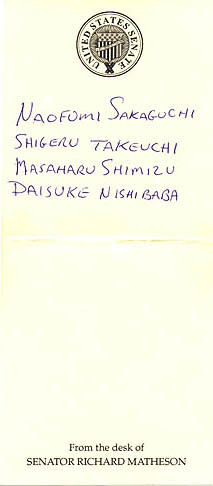 UNITED STATES SENATE
NAOFUMI SAKAGUCHI
SHIGERU TAKEUCHI
MASAHARU SHIMIZU
DAISUKE NISHIBABA
From the desk of
SENATOR RICHARD MATHESON